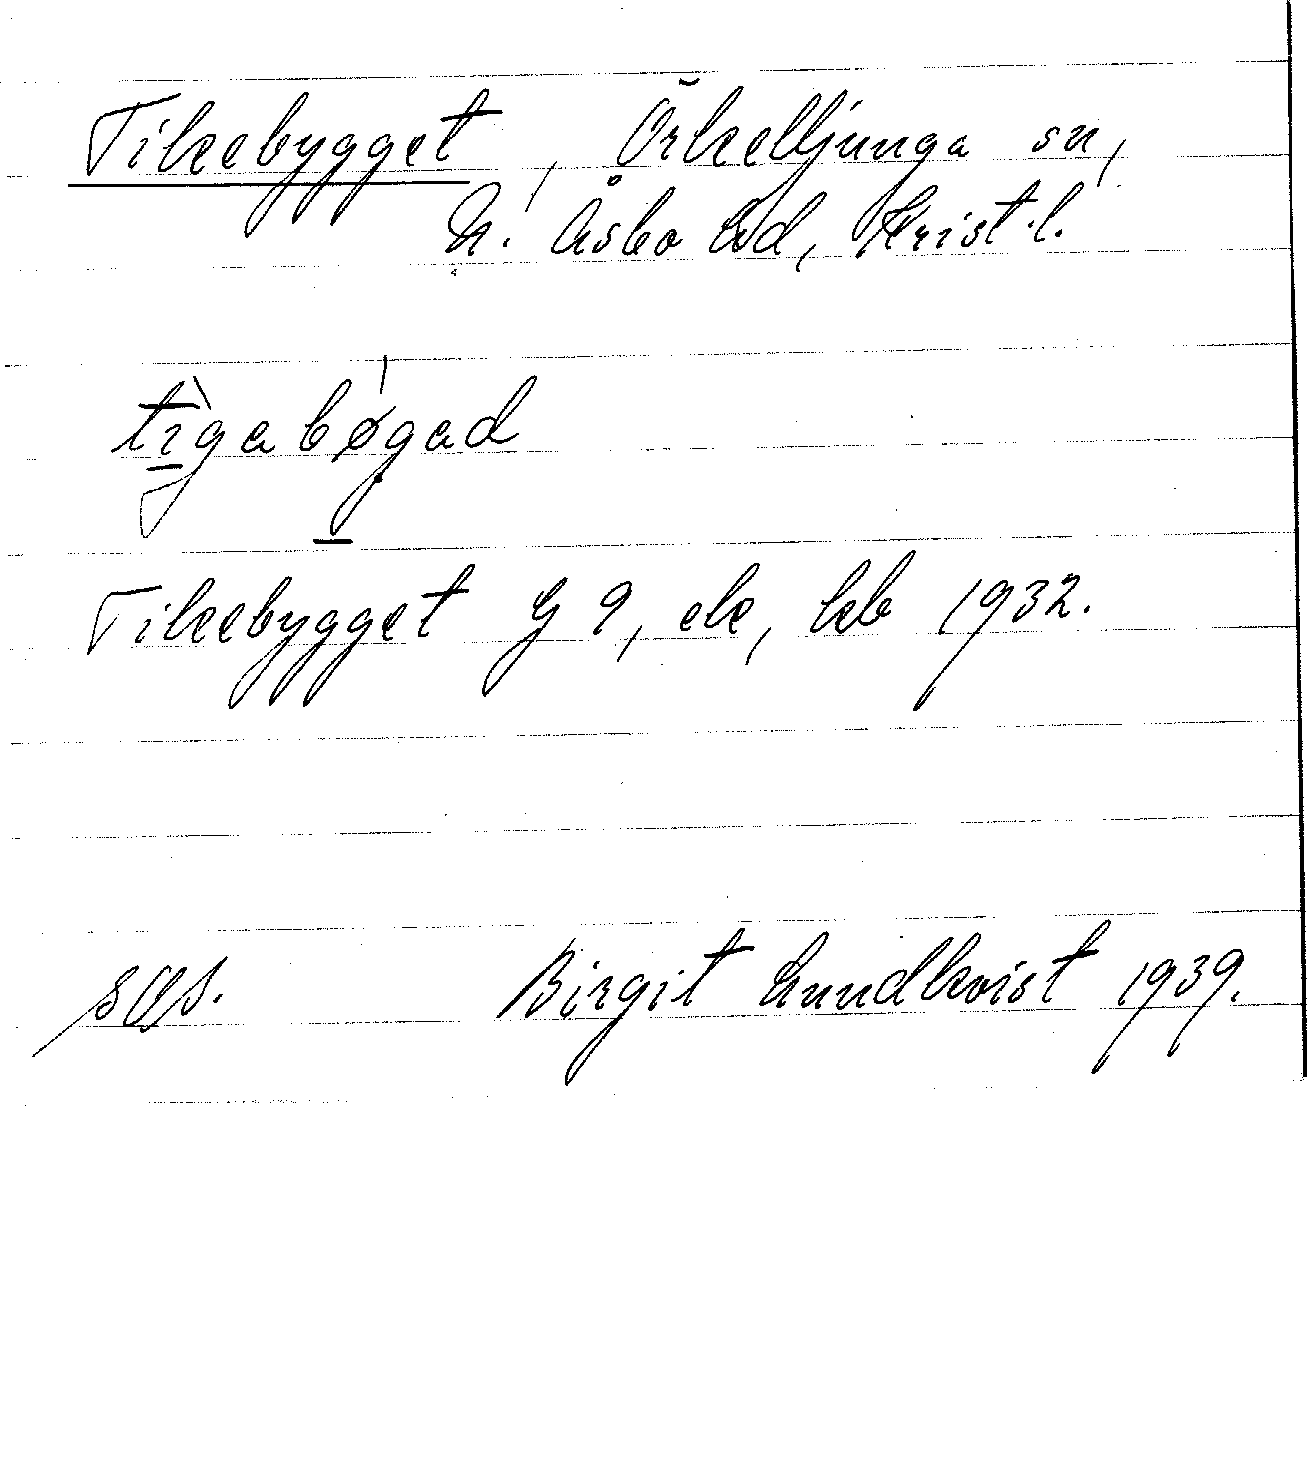 Tikebygget, Örkelljunga sn,
N. Åsbo hd, Krist.l.
tìgabøgad
Tikebygget G 9, ek, kb 1932.
Birgit Lundkvist 1939.